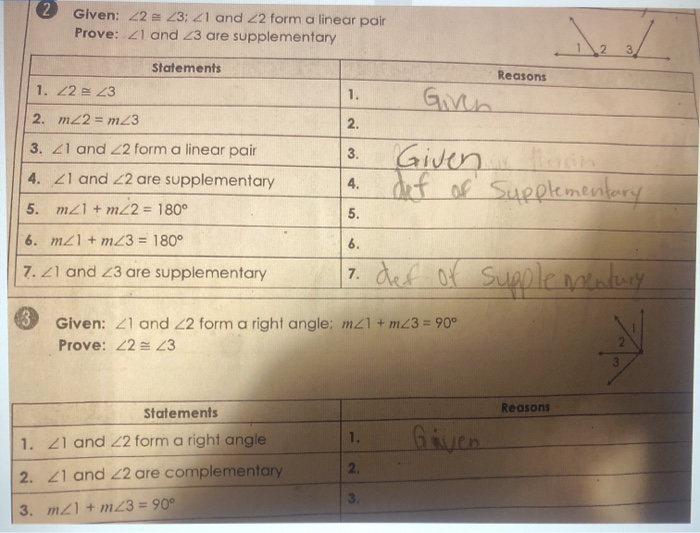 2 Given: ∠2 ≅ ∠3; ∠1 and ∠2 form a linear pair
Prove: ∠1 and ∠3 are supplementary
1 2 3
Statements Reasons
1. ∠2 ≅ ∠3 1. Given
2. m∠2 = m∠3 2.
3. ∠1 and ∠2 form a linear pair 3. Given
4. ∠1 and ∠2 are supplementary 4. def of Supplementary
5. m∠1 + m∠2 = 180° 5.
6. m∠1 + m∠3 = 180° 6.
7. ∠1 and ∠3 are supplementary 7. def of supplementary
3 Given: ∠1 and ∠2 form a right angle; m∠1 + m∠3 = 90°
Prove: ∠2 ≅ ∠3
1
2
3
Statements Reasons
1. ∠1 and ∠2 form a right angle 1. Given
2. ∠1 and ∠2 are complementary 2.
3. m∠1 + m∠3 = 90° 3.